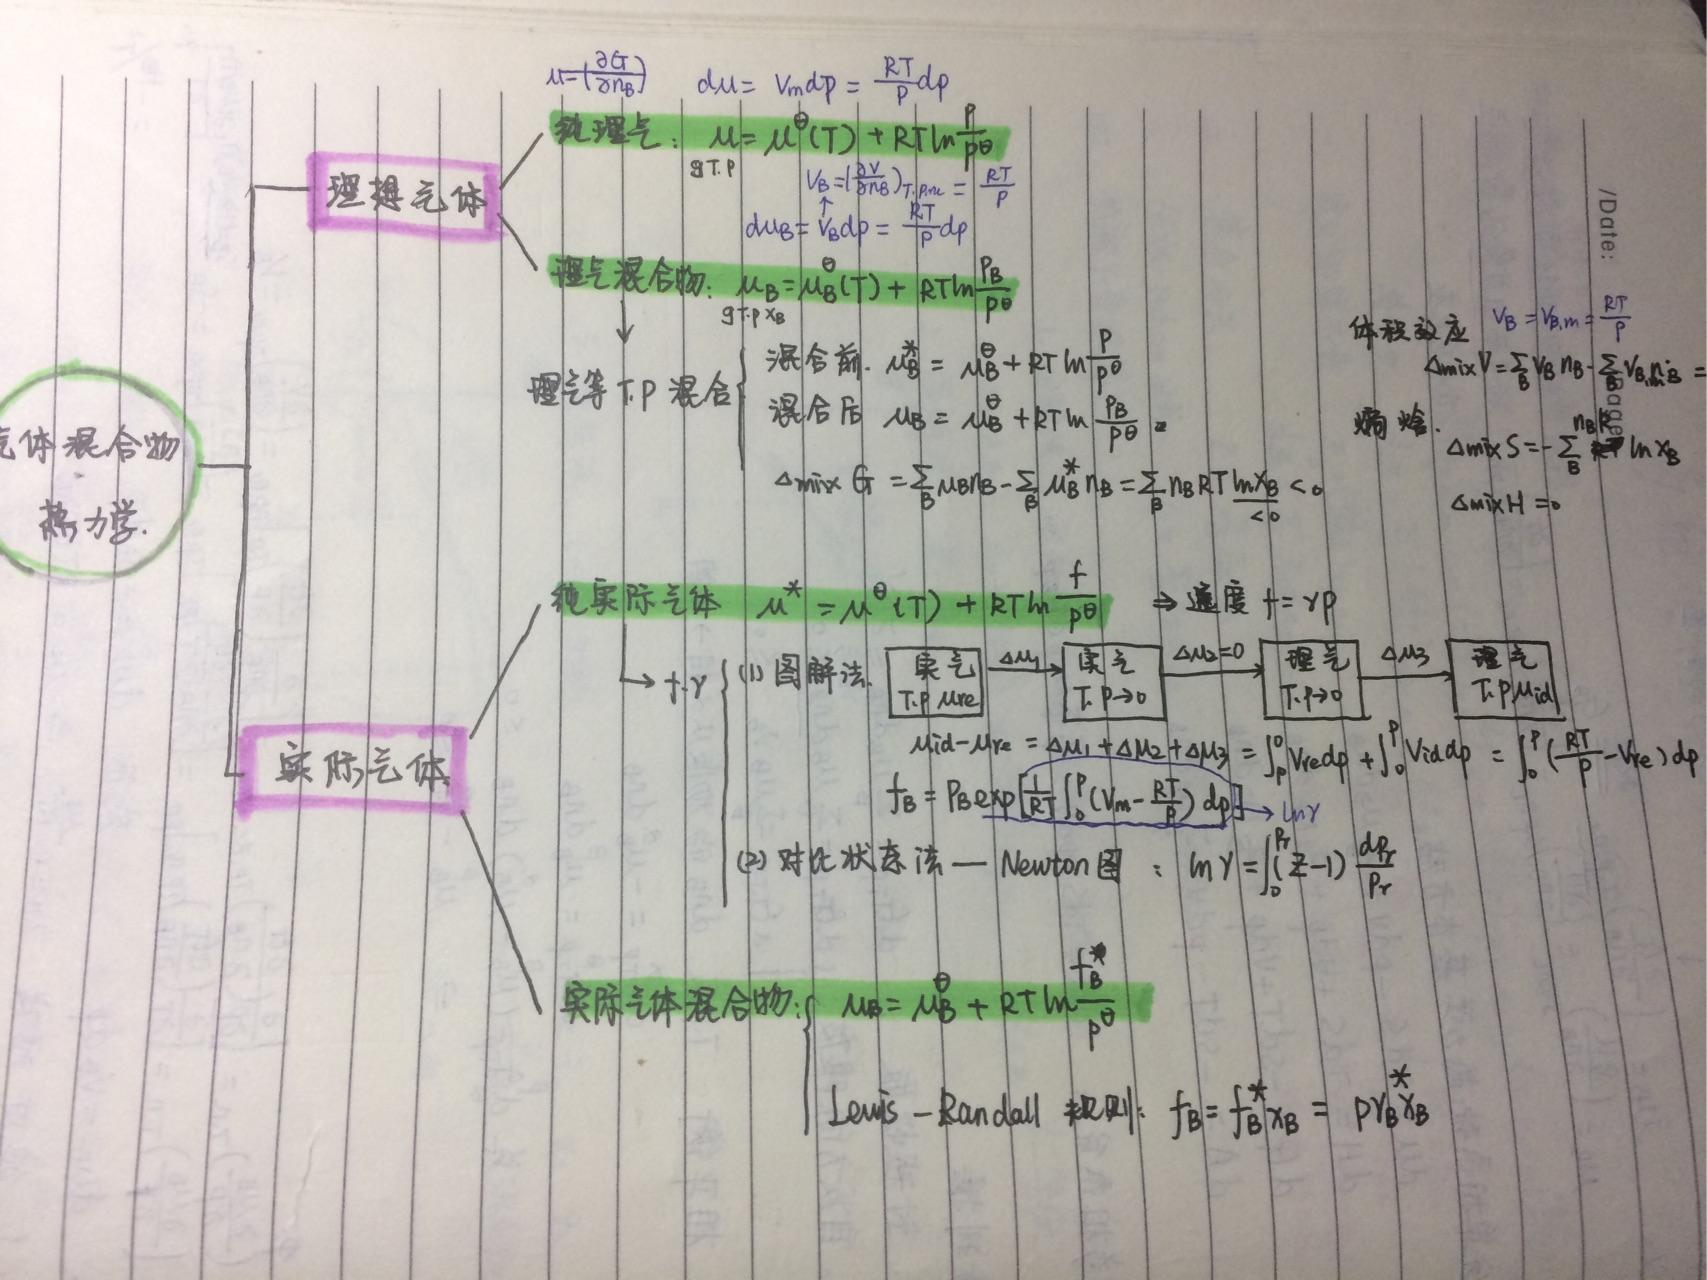 μ=(∂G/∂n_B) dμ = V_m dp = RT/p dp
纯理气: μ = μ^θ(T) + RT ln p/p^θ
g T.p
V_B = (∂V/∂n_B)_T.p.n_c = RT/p
↑
dμ_B = V_B dp = RT/p dp
理想气体
理气混合物: μ_B = μ_B^θ(T) + RT ln p_B/p^θ
g T.p x_B
理气等T.P混合
混合前. μ_B^* = μ_B^θ + RT ln p/p^θ
混合后 μ_B = μ_B^θ + RT ln p_B/p^θ =
Δmix G = Σ_B μ_B n_B - Σ_B μ_B^* n_B = Σ_B n_B RT ln x_B < 0
<0
体积效应 V_B = V_B,m = RT/p
Δmix V = Σ_B V_B n_B - Σ_B V_B,m n_B =
熵焓.
Δmix S = - Σ_B n_B R ln x_B
Δmix H = 0
/Date:
气体混合物
热力学.
纯实际气体 μ^* = μ^θ(T) + RT ln f/p^θ ⇒ 逸度 f = γp
→ f.γ
(1) 图解法. 实气 T.p μre Δμ1→ 实气 T.p→0 Δμ2=0→ 理气 T.p→0 Δμ3→ 理气 T.p μid
μid-μre = Δμ1+Δμ2+Δμ3 = ∫_p^0 Vre dp + ∫_0^p Vid dp = ∫_0^p (RT/p - Vre) dp
f_B = P_B exp[1/RT ∫_0^p (V_m - RT/p) dp] → lnγ
(2) 对比状态法 — Newton图 : lnγ = ∫_0^Pr (Z-1) dPr/Pr
实际气体
实际气体混合物: μ_B = μ_B^θ + RT ln f_B^*/p^θ
Lewis - Randall 规则: f_B = f_B^* x_B = pγ_B^* x_B